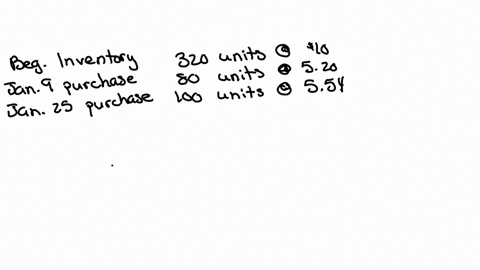 Beg. Inventory 320 units @ $10
Jan. 9 purchase 80 units @ 5.20
Jan. 25 purchase 100 units @ 5.54